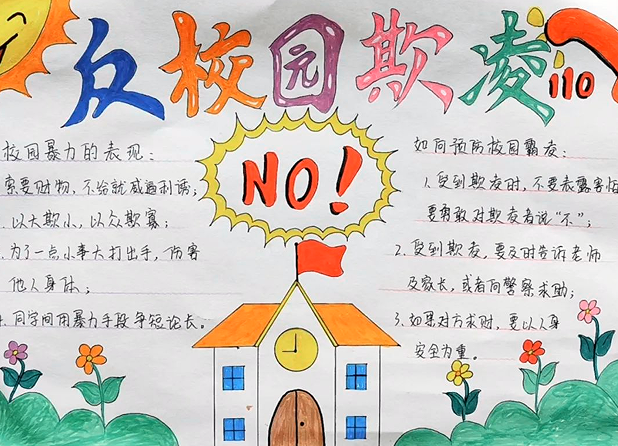 反校园欺凌
110
NO!
校园暴力的表现：
索要财物，不给就威逼利诱；
以大欺小，以众欺寡；
为了一点小事大打出手，伤害
他人身体；
4.同学间用暴力手段争短论长。
如何预防校园霸凌：
1.受到欺凌时，不要表露害怕
要勇敢对欺凌者说“不”；
2.受到欺凌，要及时告诉老师
及家长，或者向警察求助；
3.如果对方求财时，要以人身
安全为重。